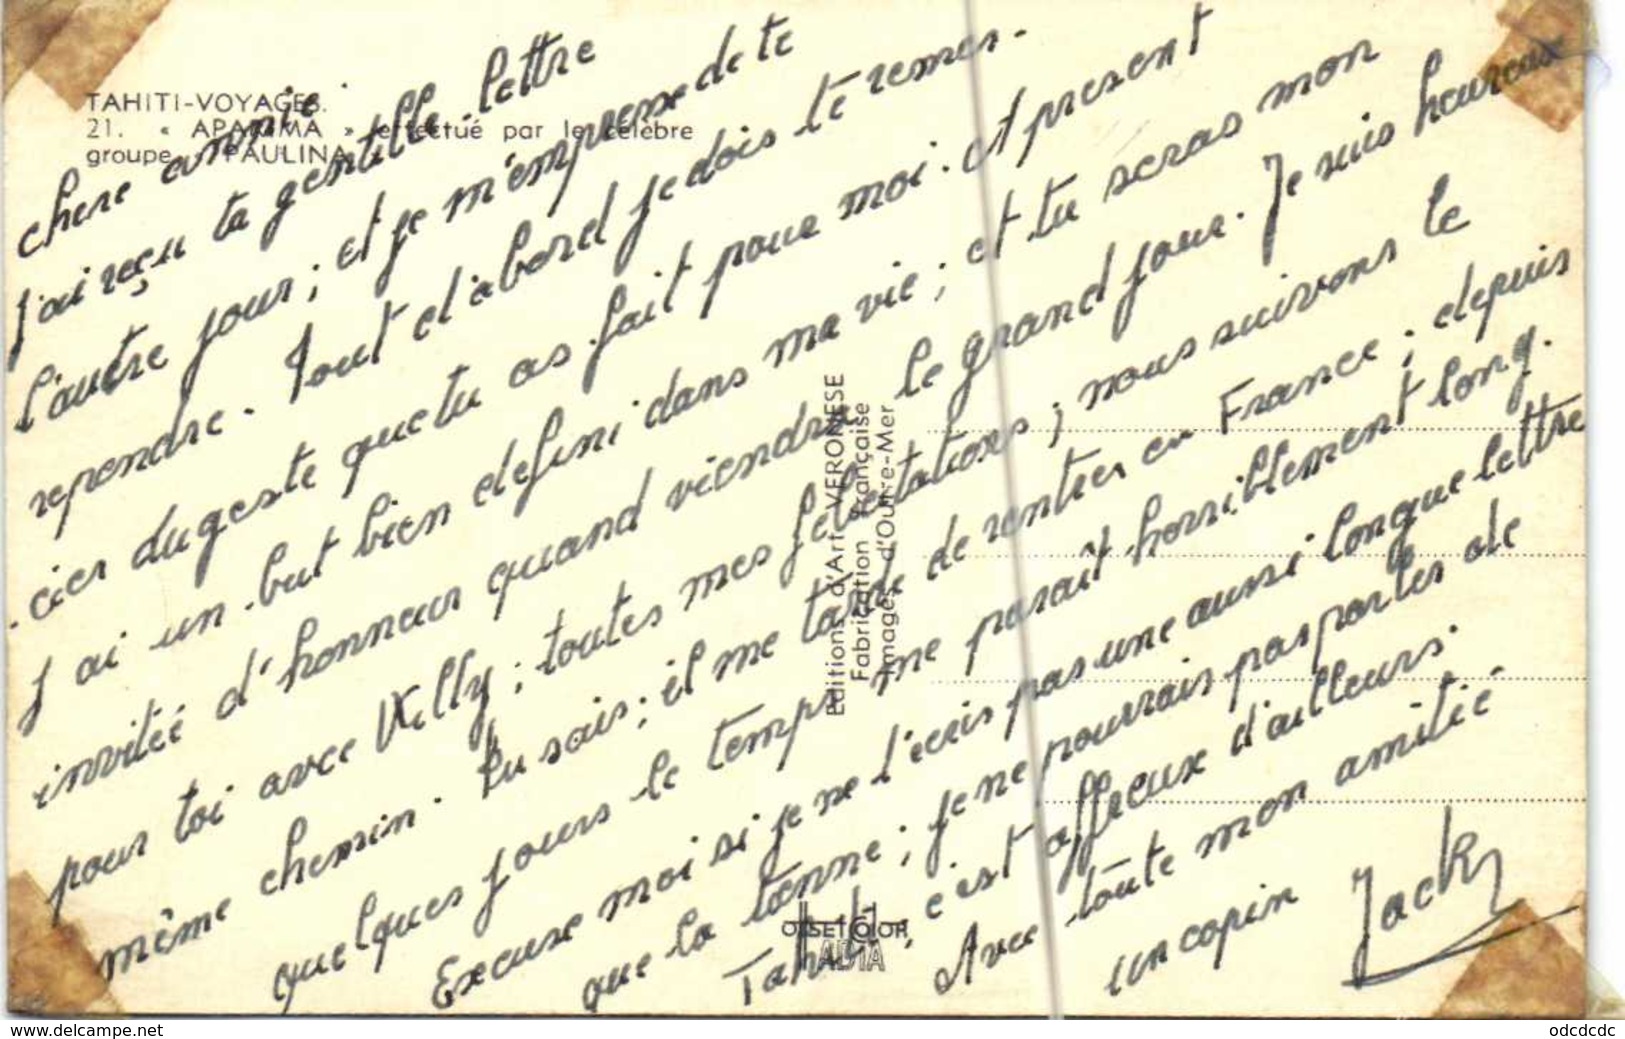 TAHITI-VOYAGES.
21. « APARIMA » effectué par le célèbre
groupe « PAULINA »
chere amie
J'ai reçu ta gentille lettre
l'autre jour ; et je m'empresse de te
repondre. Tout d'abord je dois te remer-
-cier du geste que tu as fait pour moi. et present
J'ai un but bien defini dans ma vie ; et tu seras mon
invitée d'honneur quand viendra le grand jour. Je suis heureux
pour toi avec Willy ; toutes mes felicitations ; nous suivons le
même chemin. Tu sais ; il me tarde de rentrer en France ; depuis
quelques jours le temps me parait horriblement long.
Excuse moi si je ne t'ecris pas une aussi longue lettre
que la tienne ; je ne pourrais pas parler de
Tahiti, c'est affreux d'ailleurs.
Avec toute mon amitié.
un copin Jacky
Editions d'Art VERONESE
Fabrication Française
Images d'Outre-Mer
OFFSET COLOR
ADIA
www.delcampe.net
odcdcdc